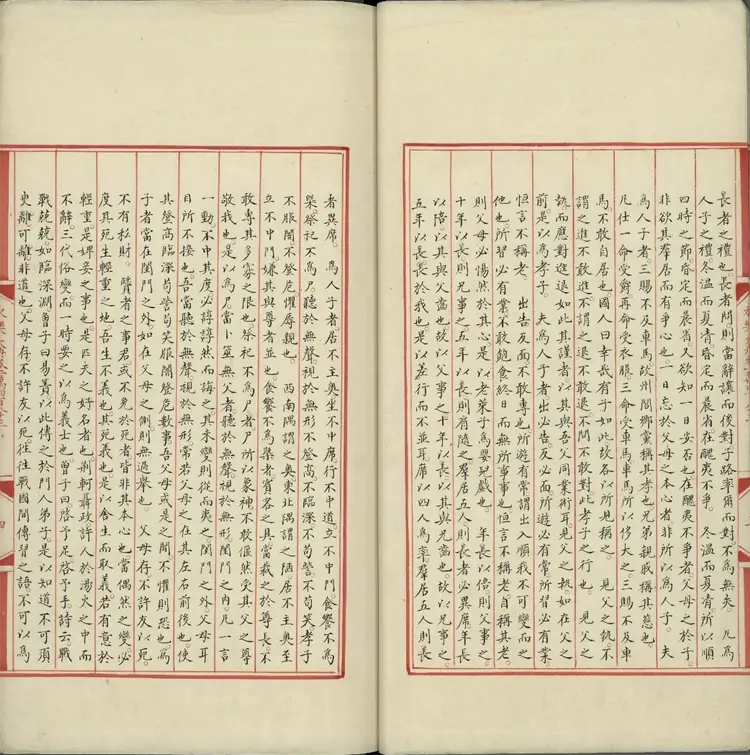 長者之禮也長者問則當辭讓而後對子路率爾而對不為無矣 凡為
人子之禮冬溫而夏凊昏定而晨省在醜夷不爭 冬溫而夏凊所以順
四時之節昏定而晨省又欲知一日安否也在醜夷不爭者父母之於子
非欲其羣居而有爭心也一日忘於父母之本心者非所以為人子 夫
為人子者三賜不及車馬故州閭鄉黨稱其孝也兄弟親戚稱其慈也
凡仕一命受爵再命受衣服三命受車馬車馬所以侈大之三賜不及車
馬不敢自居也國人曰幸哉有子如此故各以所見稱之 見父之執不
謂之進不敢進不謂之退不敢退不問不敢對此孝子之行也 見父之
執而應對進退如此其謹者以其與吾父同業術耳見父之執如在父之
前是以為孝子 夫為人子者出必告反必面所遊必有常所習必有業
恒言不稱老 出告反面不敢專也所遊有常謂出入順我不可變而之
他也所習必有業不敢飽食終日而無所事事也恒言不稱老自稱其老
則父母必惕然於其心是以老萊子為嬰兒戲也 年長以倍則父事之
十年以長則兄事之五年以長則肩隨之羣居五人則長者必異席年長
以倍以其與父齒也故以父事之十年以長以其與兄齒也故以兄事之
五年以長長於我也是以差行而不並耳席以四人為率羣居五人則長
者異席 為人子者居不主奧坐不中席行不中道立不中門食饗不為
槩祭祀不為尸聽於無聲視於無形不登高不臨深不苟訾不苟笑孝子
不服闇不登危懼辱親也 西南隅謂之奧東北隅謂之陋居不主奧至
立不中門嫌其與尊者並也食饗不為槩者賓客之具當裁之於尊長不
敢專其多寡之限也祭祀不為尸者尸所以象神不敢偃然受其父之尊
敬我也是以為人尸當卜筮無父者聽於無聲視於無形閨門之內凡一言
一動不中其度必諄諄然而誨之其未變則從而夷之閨門之外父母耳
目所不接也吾當聽於無聲視於無形常若父母之在其左右前後也使
其登高臨深苟訾苟笑服闇登危數事吾父母或是之間不懼則恐也為
子者當在閨門之外如在父母之側則無過舉也 父母存不許友以死
不有私財 賢者之事君或不免於死者皆非其本心也當偶然之變必
度其死生輕重之地吾生不義也其死義也是以舍生而取義若有意於
輕重是婢妾之事也是匹夫之好名者也荆軻聶政許人於湯火之中而
不辭三代俗變而一時妄之以為義士也曾子曰啓予足啓予手詩云戰
戰兢兢如臨深淵曾子曰易簀以此傳之於門人弟子是以知道不可須
臾離可離非道也父母存不許友以死徃徃戰國間傳習之語不可以為